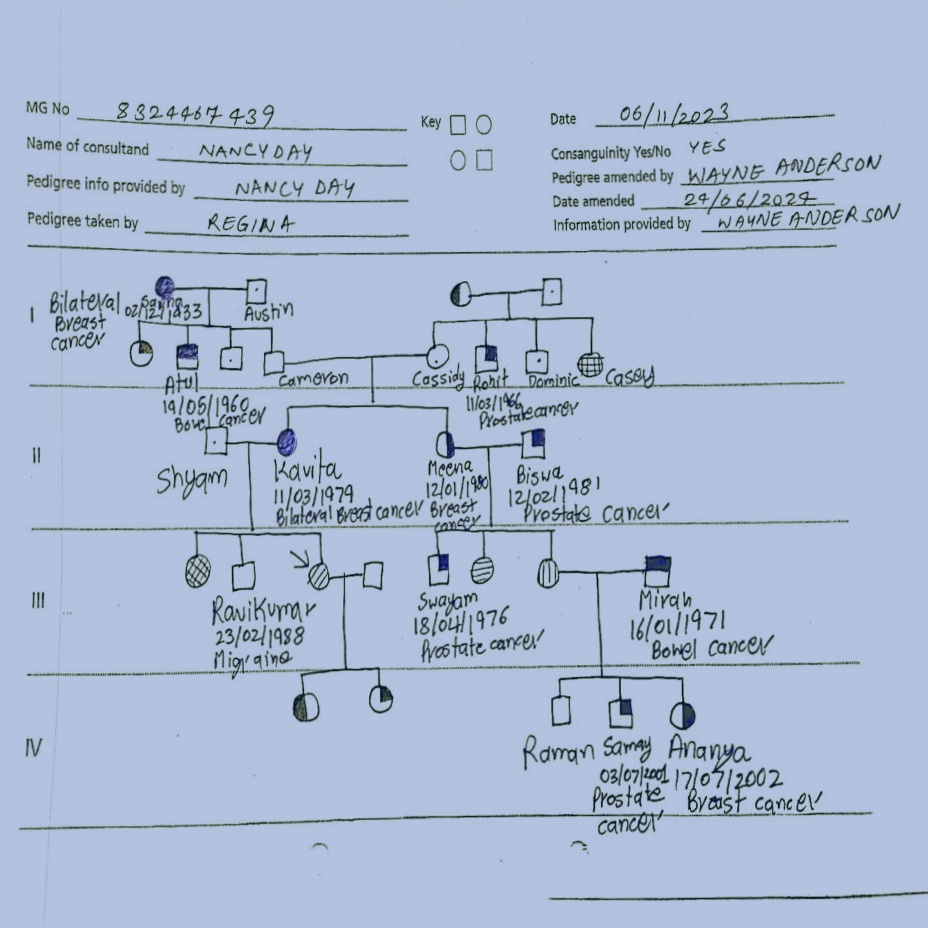 MG No 8324467439
Key
Date 06/11/2023
Name of consultand NANCY DAY
Consanguinity Yes/No YES
Pedigree info provided by NANCY DAY
Pedigree amended by WAYNE ANDERSON
Date amended 24/06/2024
Pedigree taken by REGINA
Information provided by WAYNE ANDERSON
I
Bilateral
Breast
cancer
02/12/1933
Austin
Atul
19/05/1960
Bowel cancer
Cameron
Cassidy
Rohit
11/03/1966
Prostate cancer
Dominic
Casey
II
Shyam
Kavita
11/03/1979
Bilateral Breast cancer
Meena
12/01/1980
Breast
cancer
Biswa
12/02/1981
Prostate cancer
III
RaviKumar
23/02/1988
Migraine
Swayam
18/04/1976
Prostate cancer
Mirah
16/01/1971
Bowel cancer
IV
Raman
Samay
03/07/2001
Prostate
cancer
Ananya
17/07/2002
Breast cancer